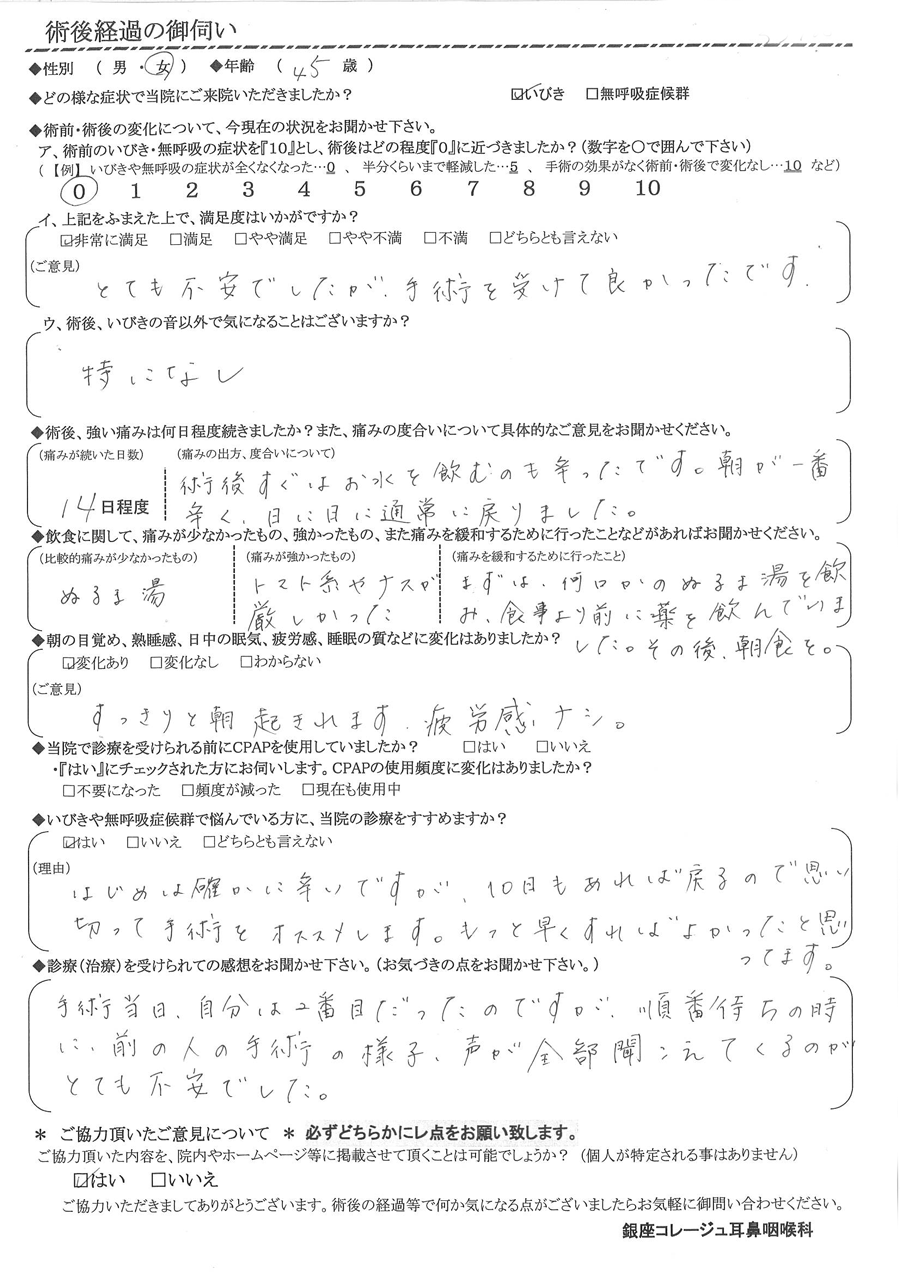 術後経過の御伺い
◆性別 ( 男 ・ 女 ) ◆年齢 ( 45 歳 )
◆どの様な症状で当院にご来院いただきましたか? ☑いびき □無呼吸症候群
◆術前・術後の変化について、今現在の状況をお聞かせ下さい。
ア、術前のいびき・無呼吸の症状を『10』とし、術後はどの程度『0』に近づきましたか?(数字を〇で囲んで下さい)
(【例】 いびきや無呼吸の症状が全くなくなった…0 、 半分くらいまで軽減した…5 、 手術の効果がなく術前・術後で変化なし…10 など)
0 1 2 3 4 5 6 7 8 9 10
イ、上記をふまえた上で、満足度はいかがですか?
☑非常に満足 □満足 □やや満足 □やや不満 □不満 □どちらとも言えない
(ご意見)
とても不安でしたが、手術を受けて良かったです.
ウ、術後、いびきの音以外で気になることはございますか?
特になし
◆術後、強い痛みは何日程度続きましたか?また、痛みの度合いについて具体的なご意見をお聞かせください。
(痛みが続いた日数) (痛みの出方、度合いについて)
14日程度 術後すぐはお水を飲むのも辛ったです。朝が一番
辛く、日に日に通常に戻りました。
◆飲食に関して、痛みが少なかったもの、強かったもの、また痛みを緩和するために行ったことなどがあればお聞かせください。
(比較的痛みが少なかったもの) (痛みが強かったもの) (痛みを緩和するために行ったこと)
ぬるま湯 トマト系やナスが まずは、何口かのぬるま湯を飲
厳しかった み、食事より前に薬を飲んでいま
した。その後、朝食を。
◆朝の目覚め、熟睡感、日中の眠気、疲労感、睡眠の質などに変化はありましたか?
☑変化あり □変化なし □わからない
(ご意見)
すっきりと朝起きれます、疲労感、ナシ。
◆当院で診療を受けられる前にCPAPを使用していましたか? □はい □いいえ
・『はい』にチェックされた方にお伺いします。CPAPの使用頻度に変化はありましたか?
□不要になった □頻度が減った □現在も使用中
◆いびきや無呼吸症候群で悩んでいる方に、当院の診療をすすめますか?
☑はい □いいえ □どちらとも言えない
(理由)
はじめは確かに辛いですが、10日もあれば戻るので思い
切って手術をオススメします。もっと早くすればよかったと思
ってます。
◆診療(治療)を受けられての感想をお聞かせ下さい。(お気づきの点をお聞かせ下さい。)
手術当日、自分は2番目だったのですが、順番待ちの時
に、前の人の手術の様子、声が全部聞こえてくるのが
とても不安でした。
＊ ご協力頂いたご意見について ＊ 必ずどちらかにレ点をお願い致します。
ご協力頂いた内容を、院内やホームページ等に掲載させて頂くことは可能でしょうか? (個人が特定される事はありません)
☑はい □いいえ
ご協力いただきましてありがとうございます。術後の経過等で何か気になる点がございましたらお気軽に御問い合わせください。
銀座コレージュ耳鼻咽喉科